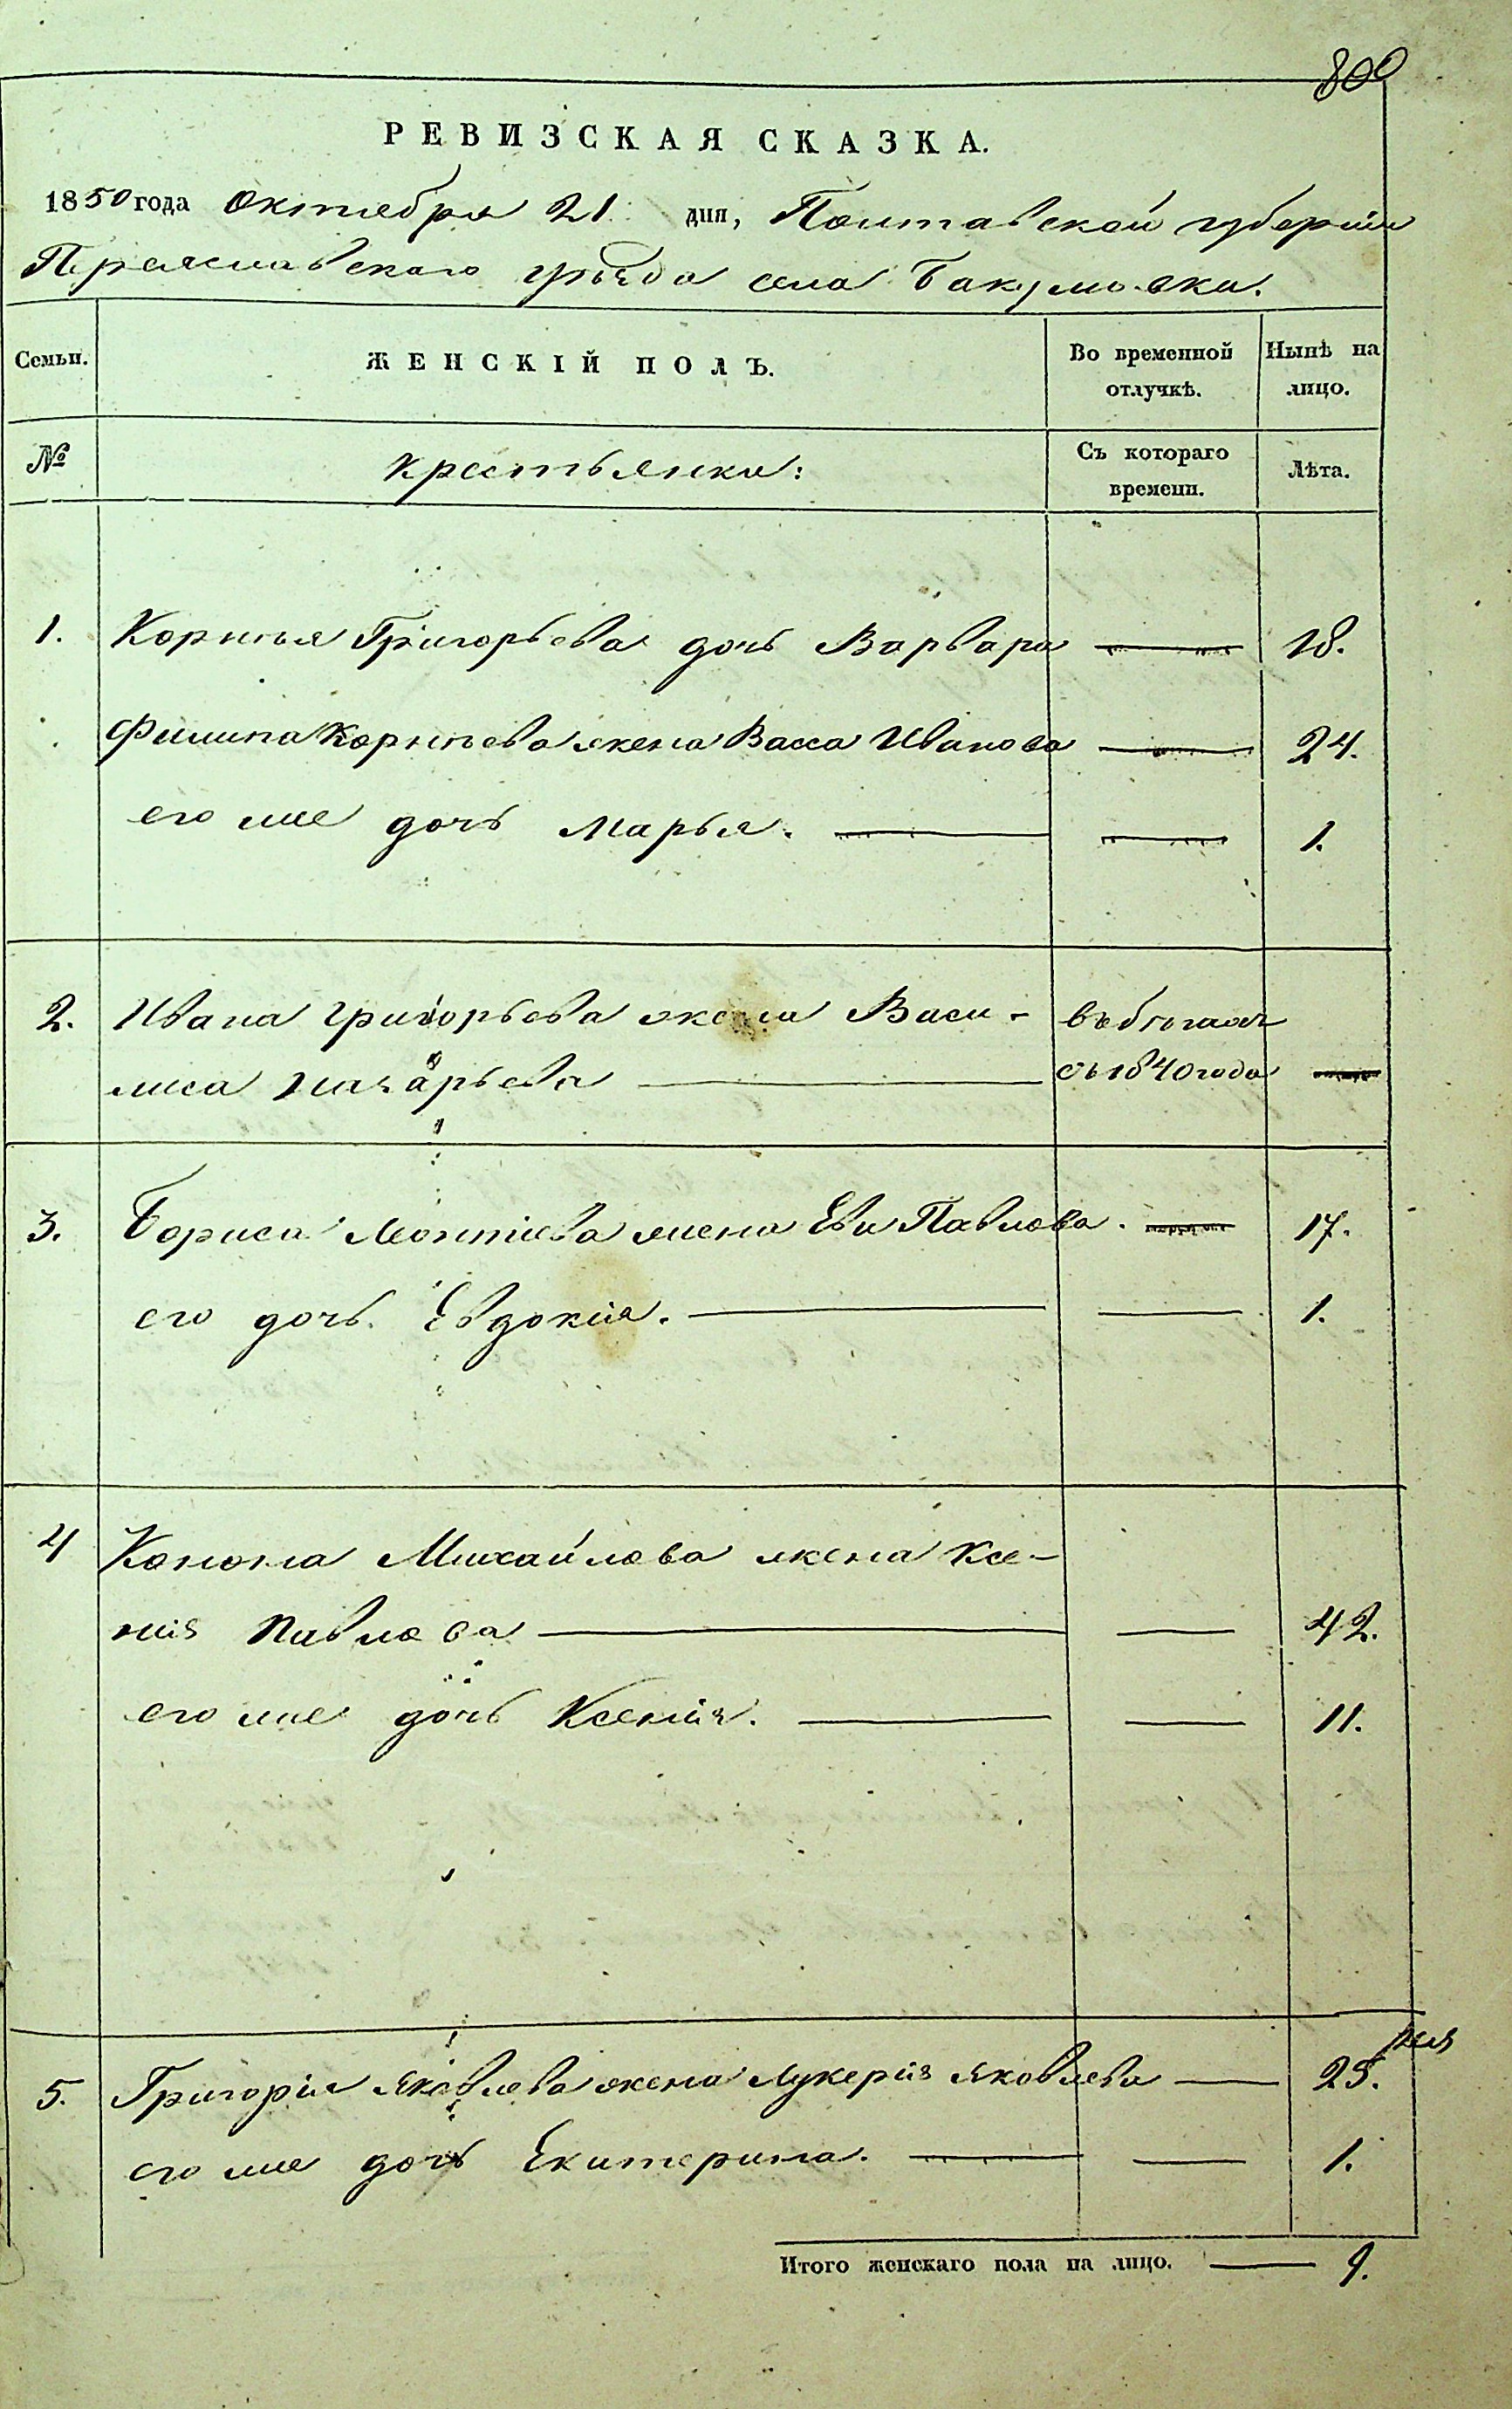 800
РЕВИЗСКАЯ СКАЗКА.
1850 года Октября 21 дня, Полтавской губернии
Переяславскаго уѣзда села Бакумовки.
Семьи. ЖЕНСКІЙ ПОЛЪ. Во временной отлучкѣ. Нынѣ на лицо.
№ Крестьянки: Съ котораго времени. Лѣта.
1. Корнѣя Григорьева дочь Варвара — 18.
Филипа Корнѣева жена Васса Иванова — 24.
его же дочь Марья. — — 1.
2. Ивана Григорьева жена Васи- въ бѣгахъ
лиса Назарьева — съ 1840 года —
3. Бориса Леонтіева жена Ева Павлова. — 17.
его дочь Евдокія. — — 1.
4 Конона Михайлова жена Ксе-
нія Павлова — — 42.
его же дочь Ксенія. — — 11.
5. Григорія Яковлева жена Лукерія Яковлева — 25.
его же дочь Екатерина. — — 1.
Итого женскаго пола на лицо. — 9.